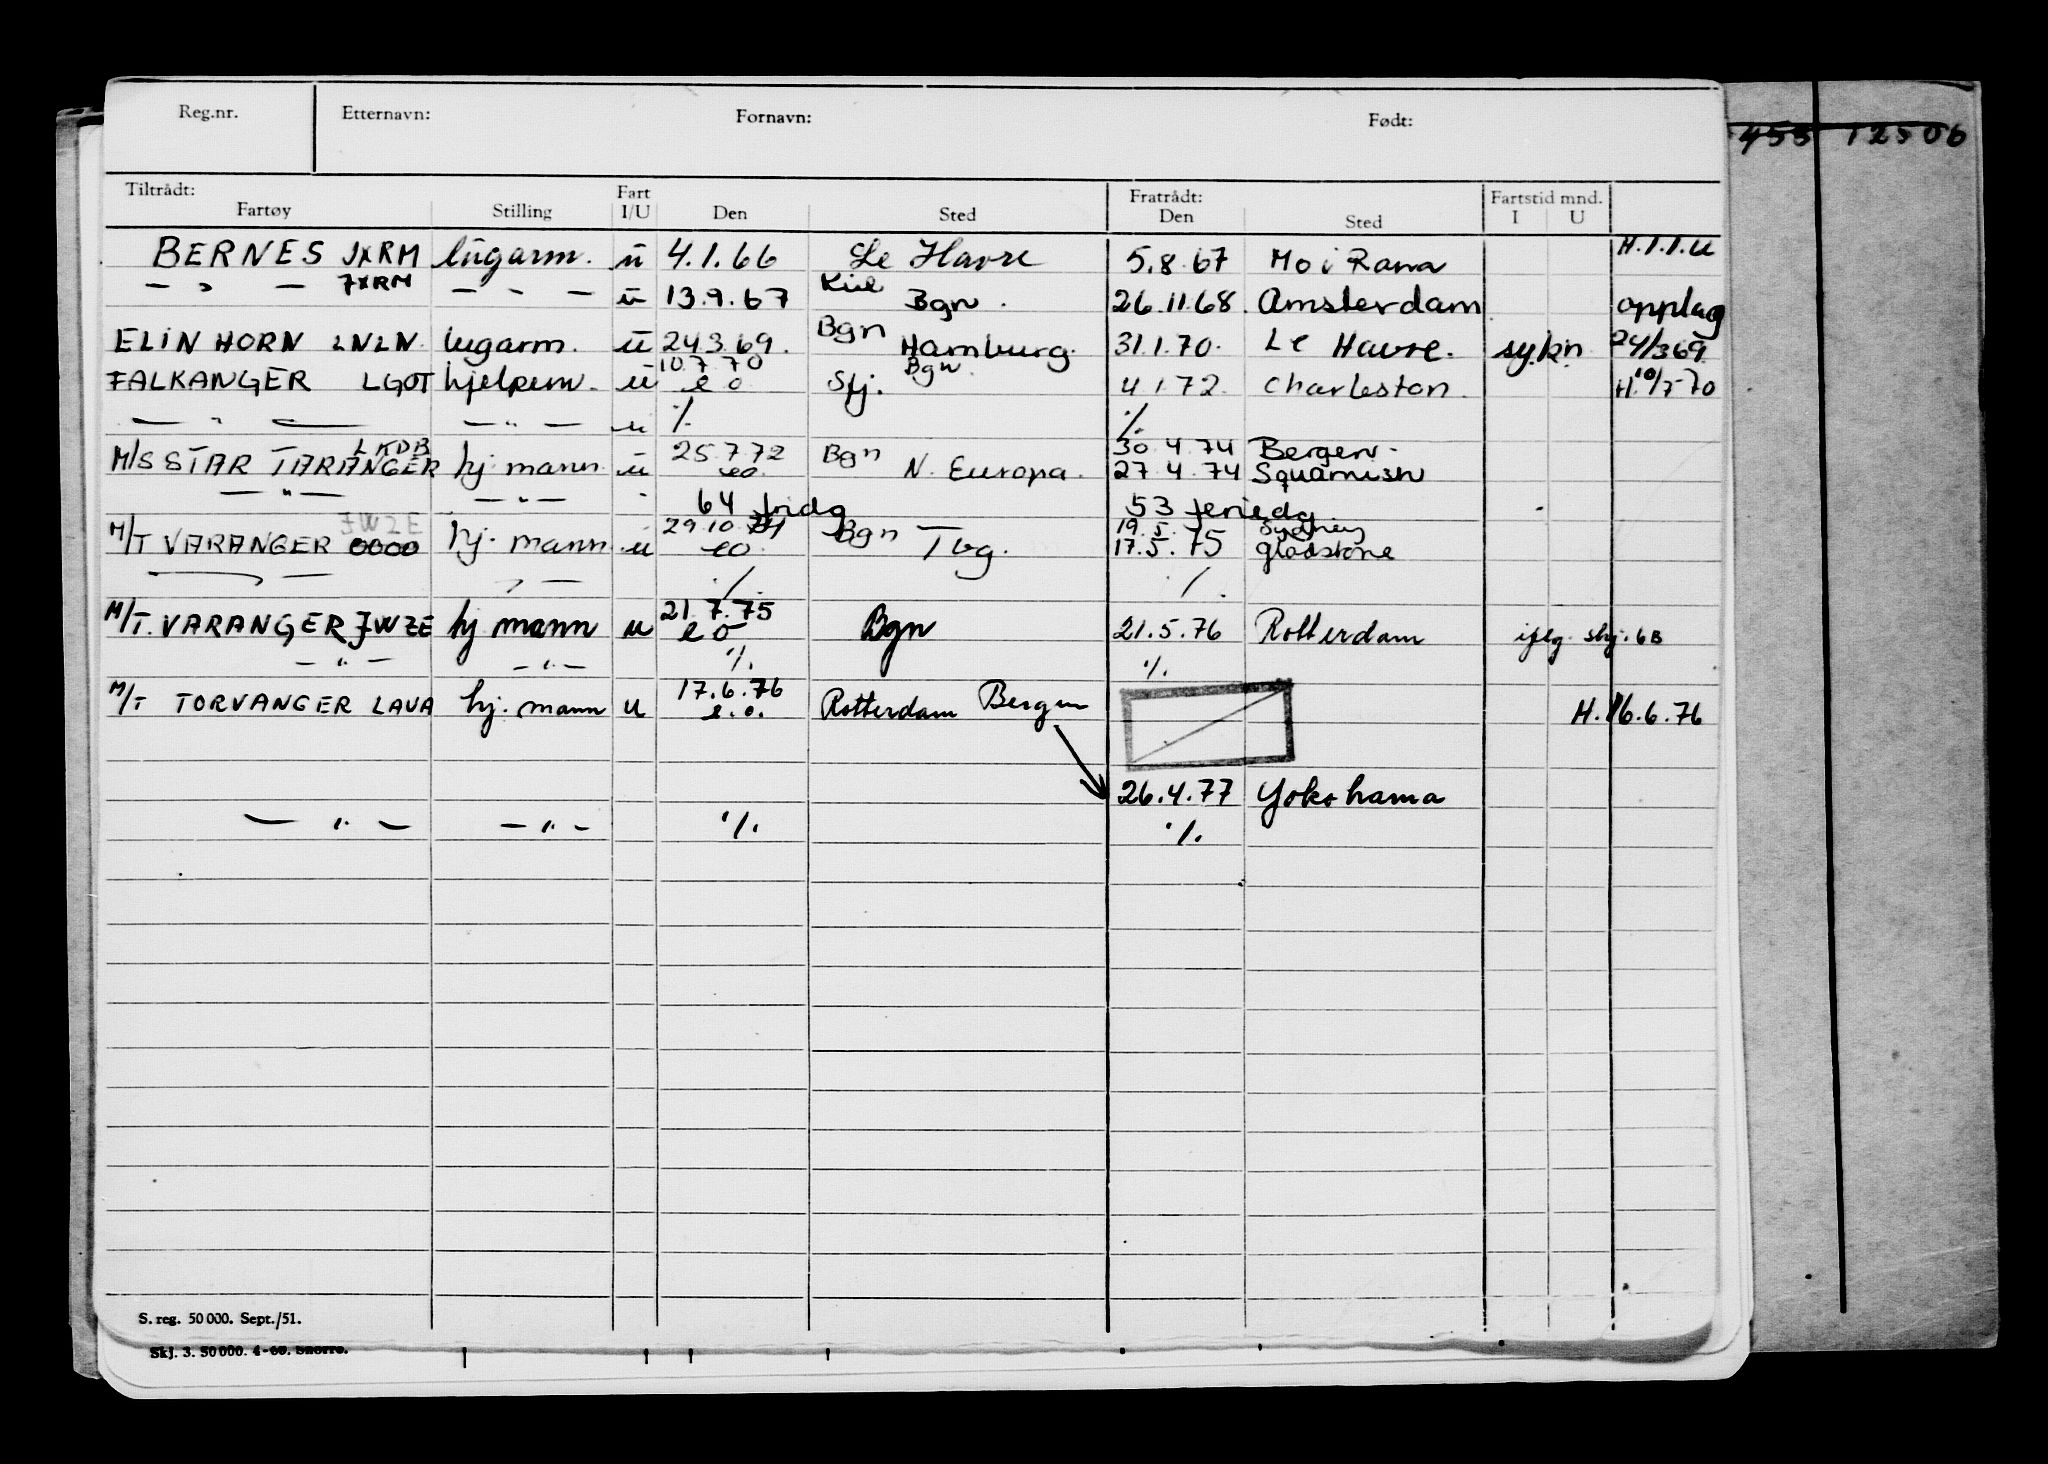 Reg.nr. Etternavn: Fornavn: Født:
455 12506
Tiltrådt: Fratrådt:
Fartøy Stilling Fart I/U Den Sted Den Sted Fartstid mnd. I U
BERNES JXRM lugarm. u 4.1.66 Le Havre 5.8.67 Mo i Rana H.1.1.u
— " — JXRM — - — u 13.9.67 Kiel Bgn. 26.11.68. Amsterdam opplag
ELIN HORN LNLN. lugarm. u 24.3.69. Bgn Hamburg. 31.1.70. Le Havre. sykn 24/369
10.7.70 Bgn.
FALKANGER LGOT hjelpem. u eo Sfj. 4.1.72. Charleston. H.10/7-70
— " — — " — u ·/. ·/.
LKDB 25.7.72 Bgn 30.4.74 Bergen.
M/S STAR TARANGER hj mann u eo N. Europa. 27.4.74 Squamish
— " — — " — 64 53
JWZE 29.10.74 Bgn 19.5. Sydney
M/T VARANGER hj. mann u eo. Tbg. 17.5.75 Gladstone
— " — ·/. ·/.
21.7.75
M/T. VARANGER JWZE hj mann u eo Bgn 21.5.76 Rotterdam
— " — — " — ·/. ·/.
17.6.76
M/T TORVANGER LAVA hj. mann u e.o. Rotterdam Bergen H.16.6.76
26.4.77 Yokohama
— " — — " — ·/. ·/.
S. reg. 50 000. Sept./51.
Skj. 3. 50 000. 4-60. Snorre.